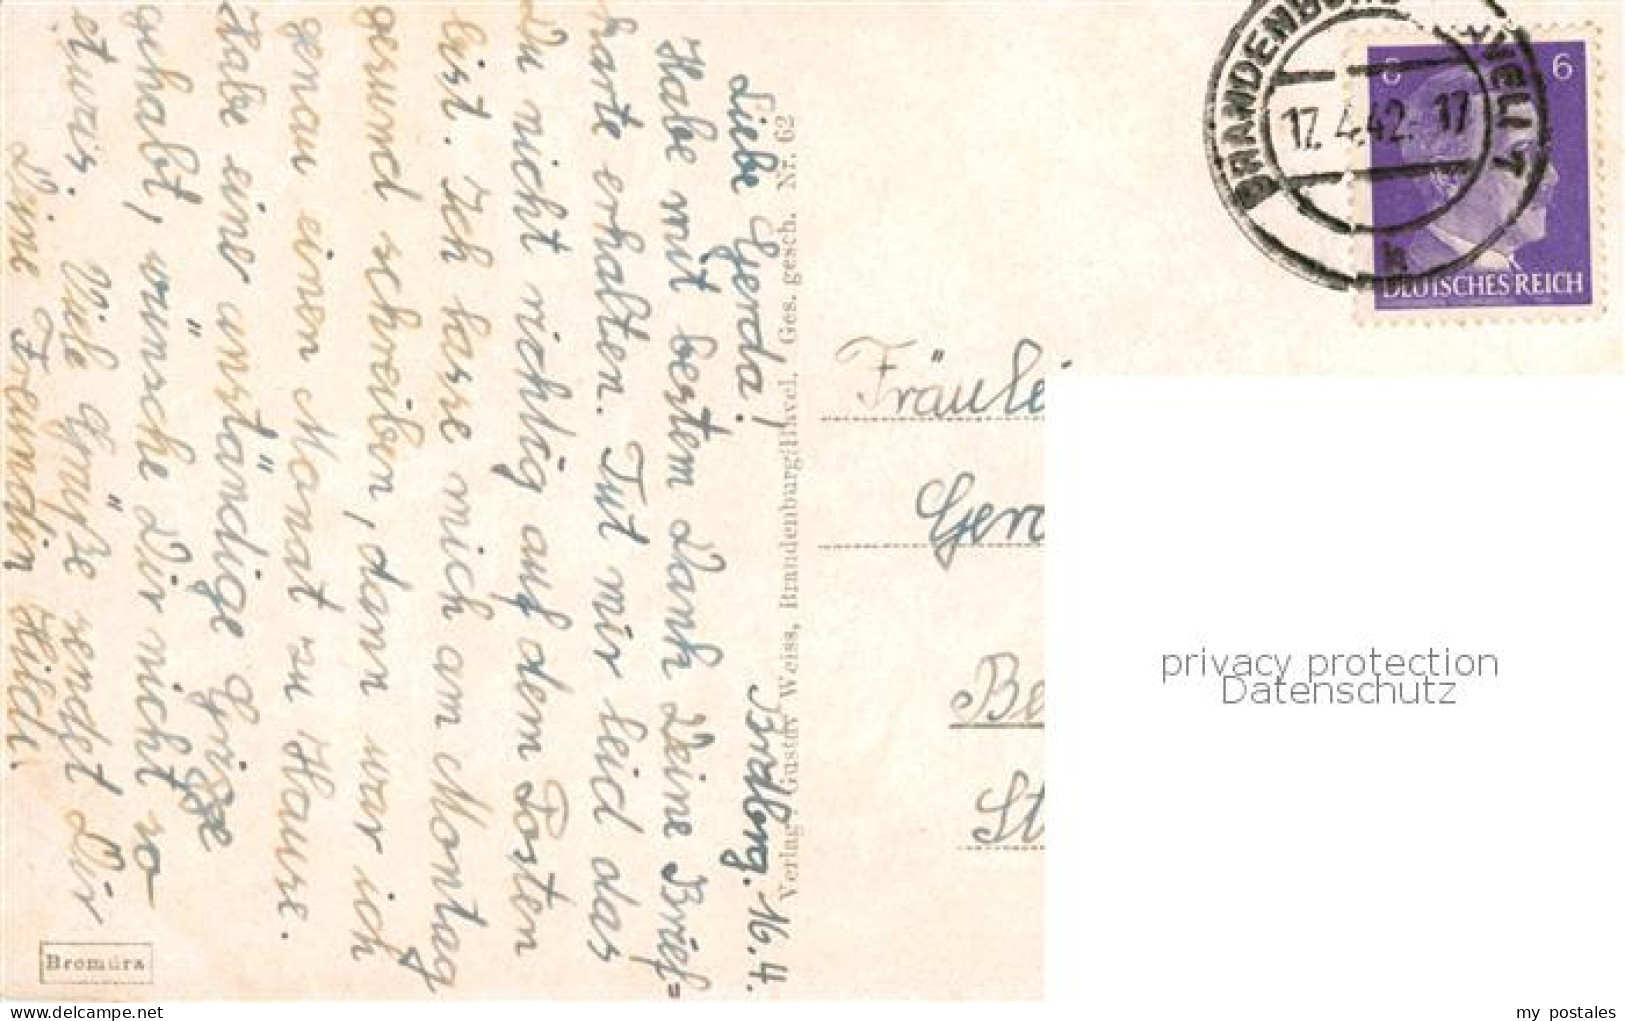 BRANDENBURG
17.4.42. 17
k
6
6
DEUTSCHES REICH
Brdbg. 16. 4.
Liebe Gerda!
Habe mit bestem Dank Deine Brief=
karte erhalten. Tut mir leid das
Du nicht richtig auf dem Posten
bist. Ich lasse mich am Montag
gesund schreiben, dann war ich
genau einen Monat zu Hause.
Habe eine anständige Grippe
gehabt, wünsche Dir nicht so
etwas. Viele Grüße sendet Dir
Deine Freundin Hilde.
Verlag Gustav Weiss, Brandenburg(Havel. Ges. gesch. Nr. 62
Bromura
Fräulei
Ger
Be
St
privacy protection
Datenschutz
www.delcampe.net
my_postales